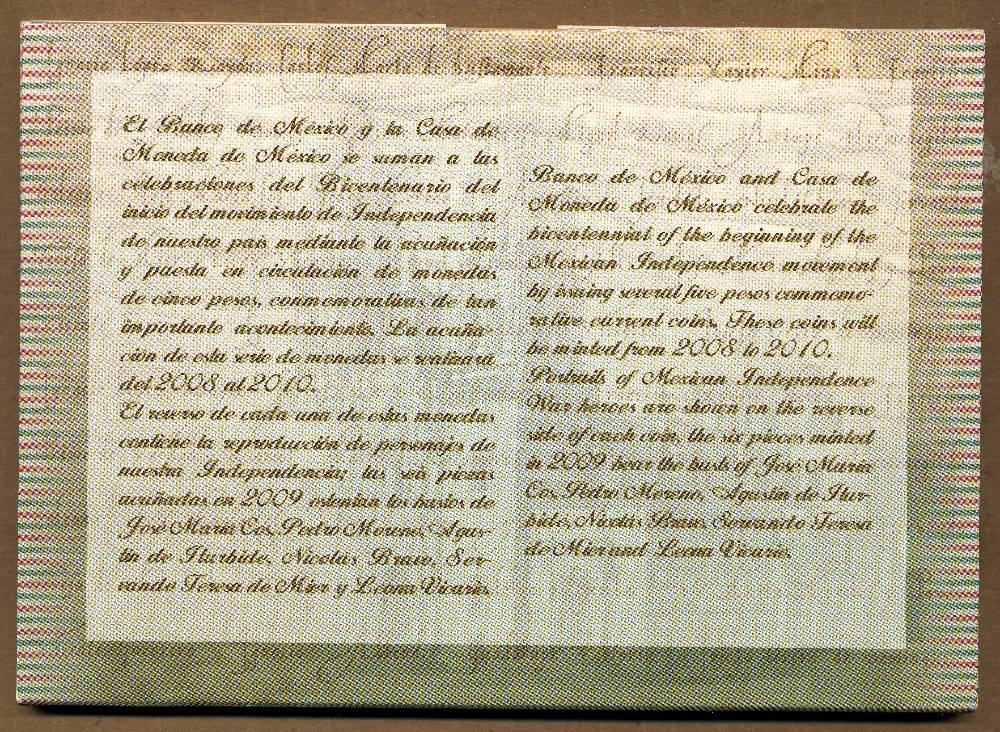 El Banco de México y la Casa de
Moneda de México se suman a las
celebraciones del Bicentenario del
inicio del movimiento de Independencia
de nuestro país mediante la acuñación
y puesta en circulación de monedas
de cinco pesos, conmemorativas de tan
importante acontecimiento. La acuña-
ción de esta serie de monedas se realizará
del 2008 al 2010.
El reverso de cada una de estas monedas
contiene la reproducción de personajes de
nuestra Independencia; las seis piezas
acuñadas en 2009 ostentan los bustos de
José María Cos, Pedro Moreno, Agus-
tín de Iturbide, Nicolás Bravo, Ser-
vando Teresa de Mier y Leona Vicario.
Banco de México and Casa de
Moneda de México celebrate the
bicentennial of the beginning of the
Mexican Independence movement
by issuing several five pesos commemo-
rative current coins. These coins will
be minted from 2008 to 2010.
Portraits of Mexican Independence
War heroes are shown on the reverse
side of each coin, the six pieces minted
in 2009 bear the busts of José María
Cos, Pedro Moreno, Agustín de Itur-
bide, Nicolás Bravo, Servando Teresa
de Mier and Leona Vicario.